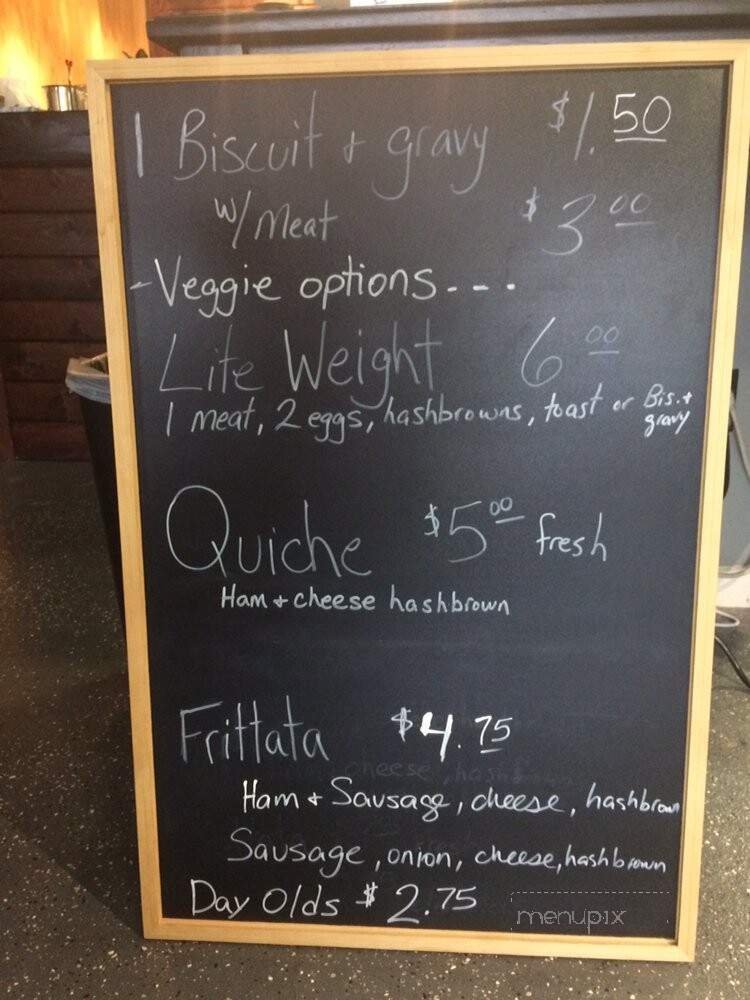 1 Biscuit + gravy $1.50
w/ Meat $3.00
- Veggie options - - - .
Lite Weight 6.00
1 meat, 2 eggs, hashbrowns, toast or Bis. + gravy
Quiche $5.00 fresh
Ham + cheese hashbrown
Frittata $4.75
cheese, hash
Ham + Sausage, cheese, hashbrown
Sausage, onion, cheese, hashbrown
Day Olds $2.75
menupix